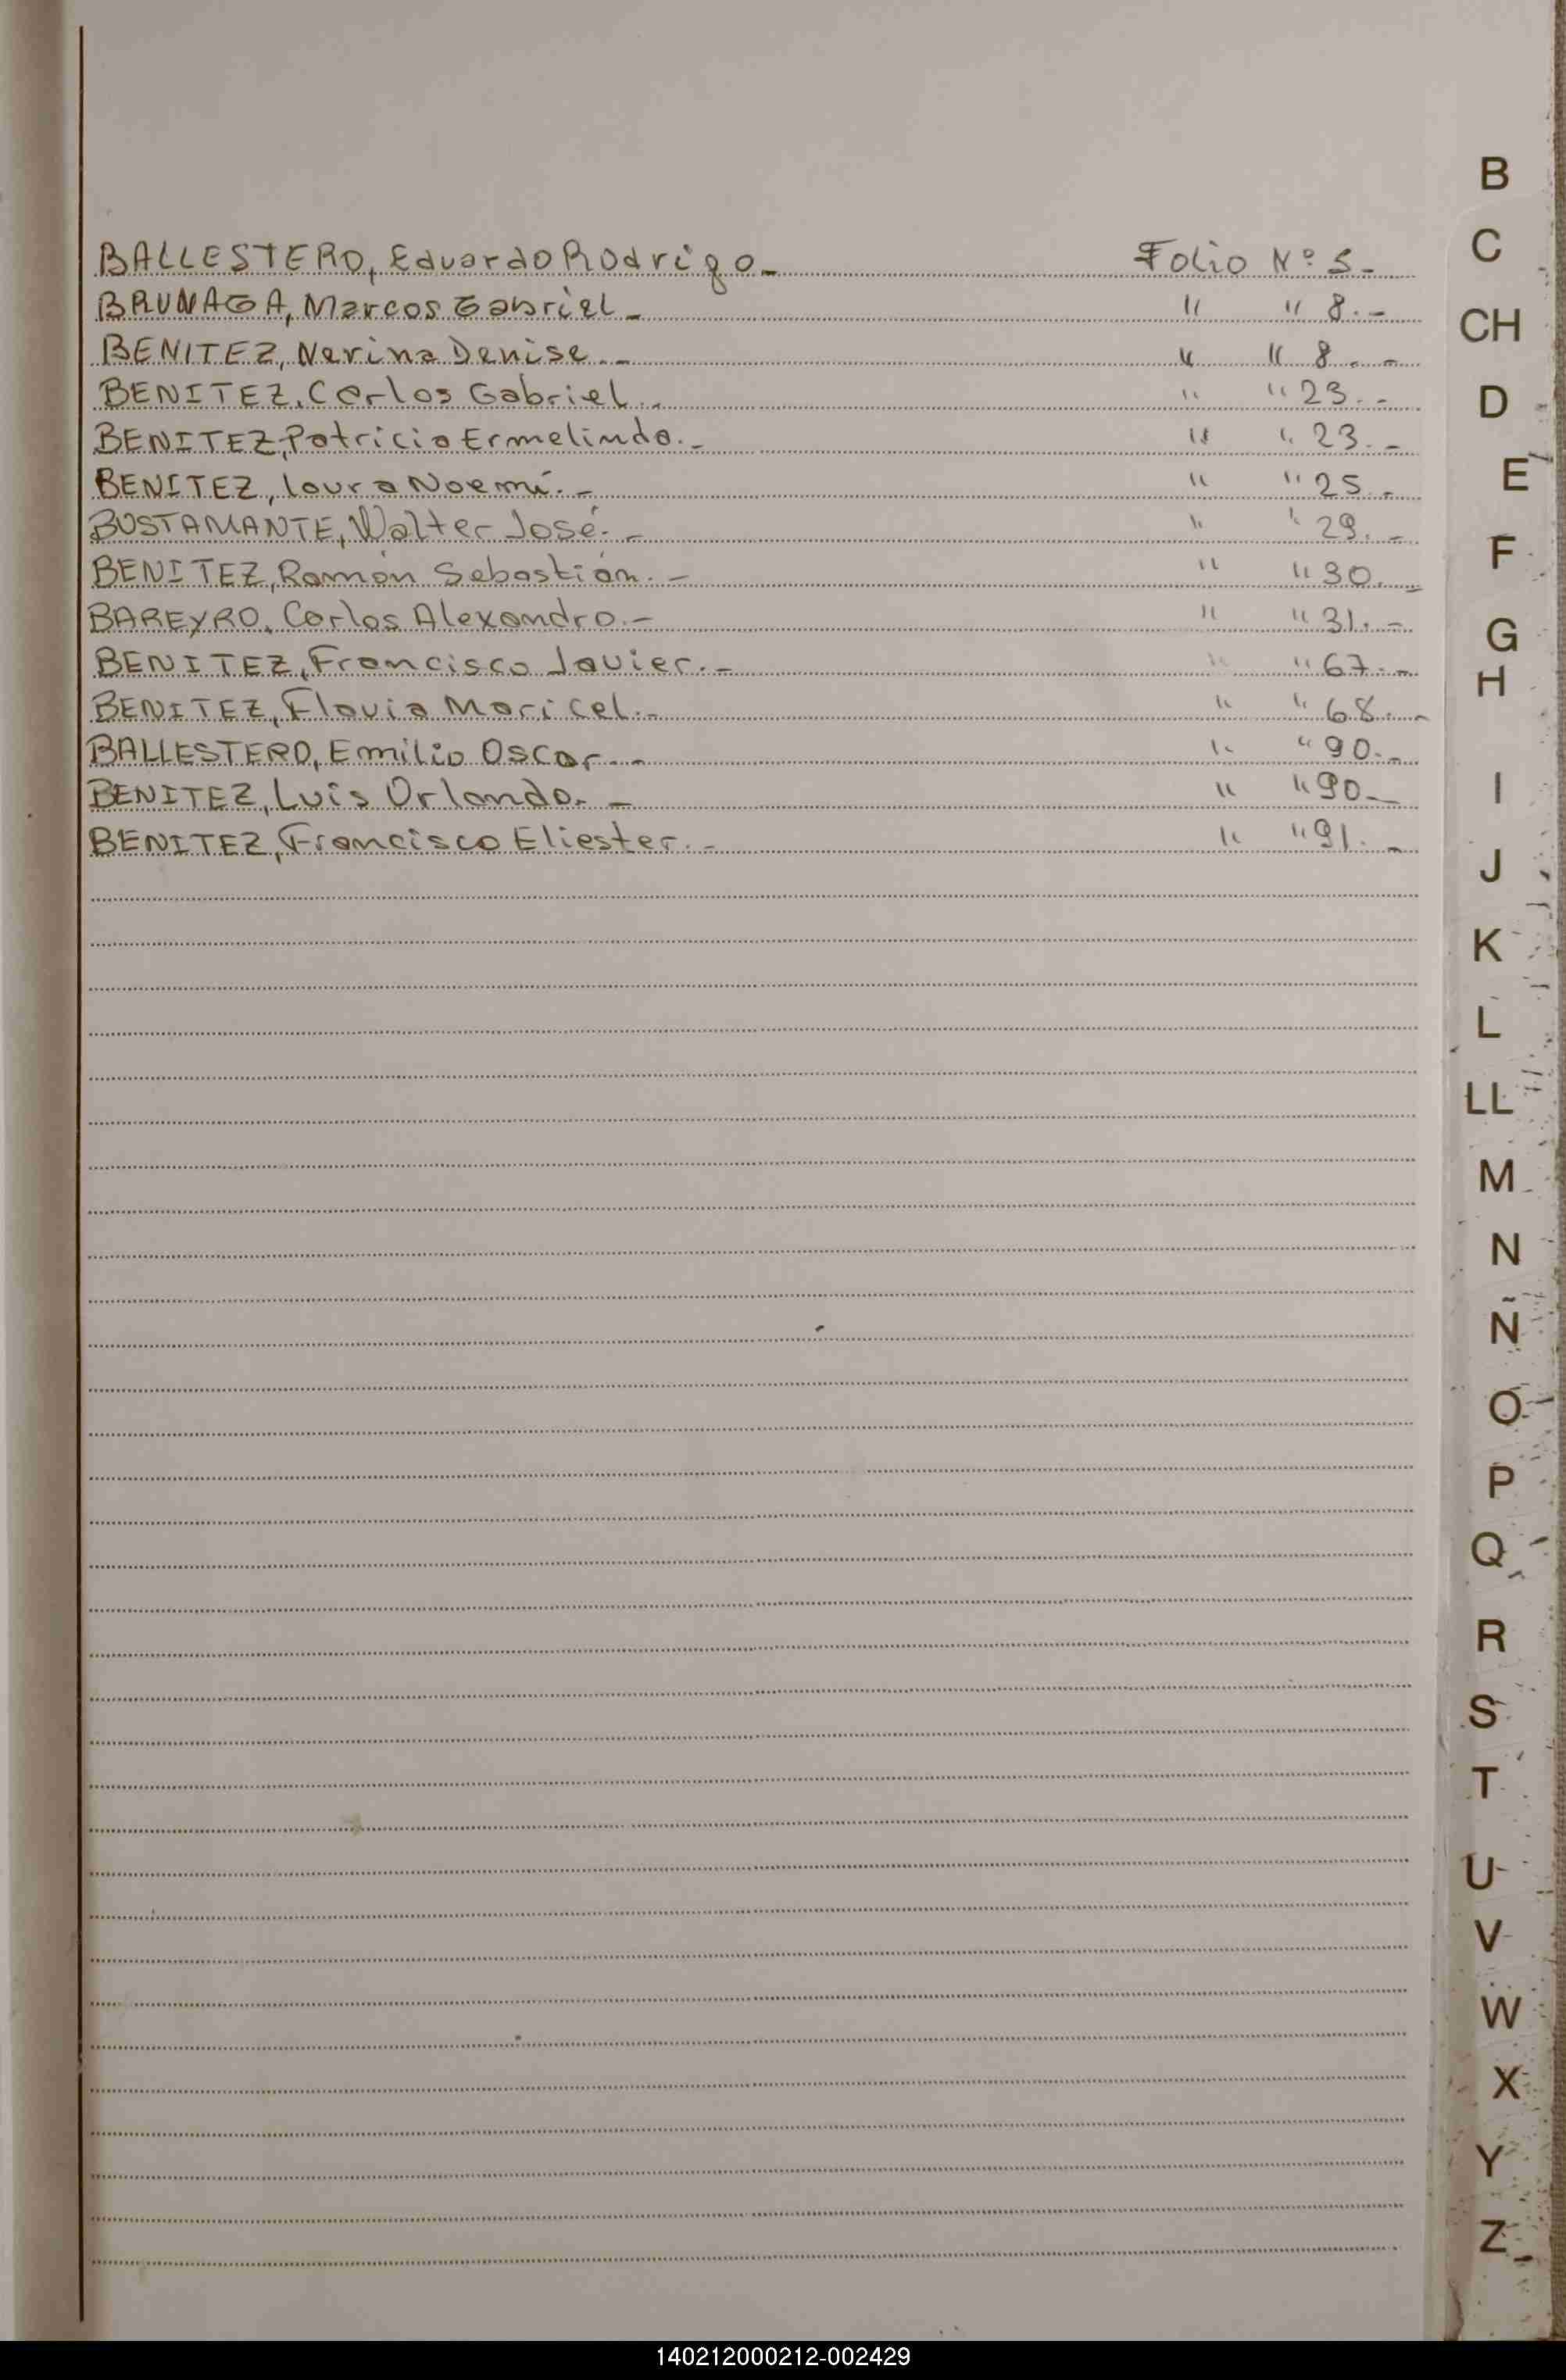 BALLESTERO, Eduardo Rodrigo.- Folio Nº 5.-
BRUNAGA, Marcos Gabriel.- " " 8.-
BENITEZ, Nerina Denise.- " " 8.-
BENITEZ, Carlos Gabriel.- " " 23.-
BENITEZ, Patricia Ermelinda.- " " 23.-
BENITEZ, Laura Noemí.- " " 25.-
BUSTAMANTE, Walter José.- " " 29.-
BENITEZ, Ramón Sebastián.- " " 30.-
BAREYRO, Carlos Alexandro.- " " 31.-
BENITEZ, Francisco Javier.- " " 67.-
BENITEZ, Flavia Maricel.- " " 68.-
BALLESTERO, Emilio Oscar.- " " 90.-
BENITEZ, Luis Orlando.- " " 90.-
BENITEZ, Francisco Eliester.- " " 91.-
B
C
CH
D
E
F
G
H
I
J
K
L
LL
M
N
Ñ
O
P
Q
R
S
T
U
V
W
X
Y
Z
140212000212-002429